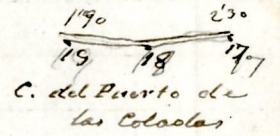 1'90 2'30
19 18 17
C. del Puerto de
las Coladas